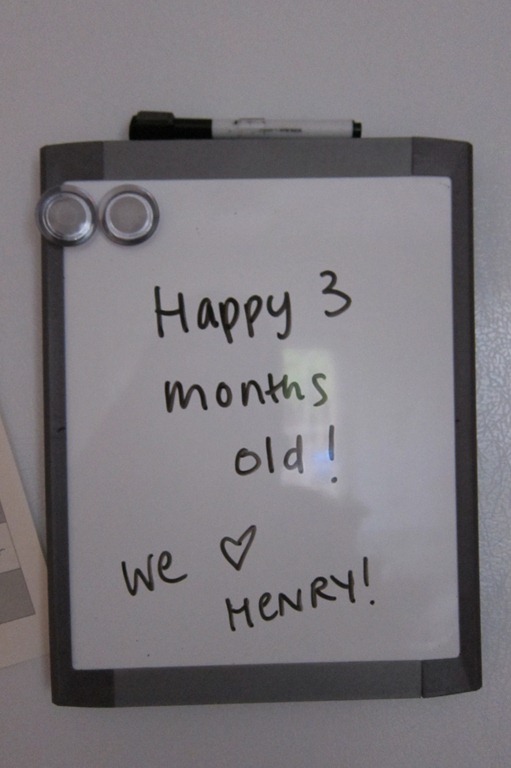 Happy 3
months
old!
We ♡
HENRY!